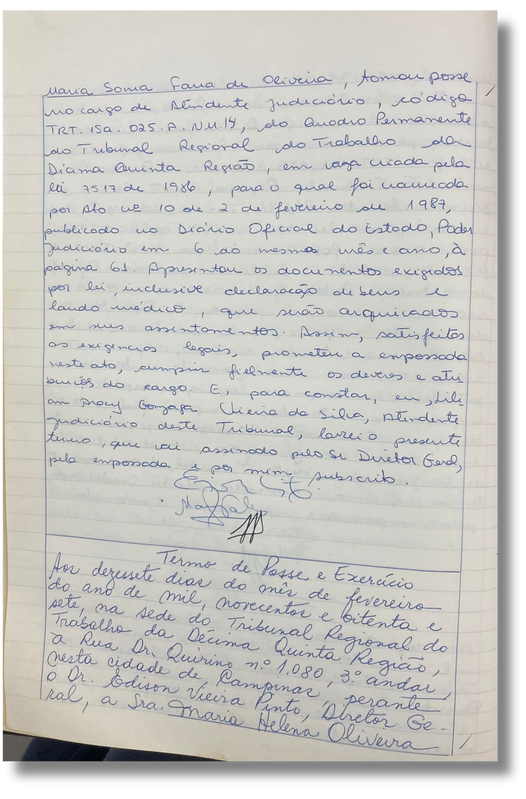 Maria Sonia Faria de Oliveira, tomou posse
no cargo de Atendente Judiciário, código
TRT. 15a. 025. A. N.M. 14, do Quadro Permanente
do Tribunal Regional do Trabalho da
Décima Quinta Região, em vaga criada pela
lei 7517 de 1986, para o qual foi nomeada
por Ato nº 10 de 2 de fevereiro de 1987,
publicado no Diário Oficial do Estado, Poder
Judiciário em 6 do mesmo mês e ano, à
página 61. Apresentou os documentos exigidos
por lei, inclusive declaração de bens e
laudo médico, que serão arquivados
em seus assentamentos. Assim, satisfeitas
as exigências legais, prometeu a empossada
neste ato, cumprir fielmente os deveres e atri
buições do cargo. E, para constar, eu,
Gonzaga Vieira da Silva, Atendente
Judiciário deste Tribunal, lavrei o presente
termo, que vai assinado pelo Sr. Diretor Geral,
pela empossada e por mim subscrito.
Termo de Posse e Exercício
Aos dezessete dias do mês de fevereiro
do ano de mil, novecentos e oitenta e
sete, na sede do Tribunal Regional do
Trabalho da Décima Quinta Região,
à Rua Dr. Quirino n.º 1.080, 3º andar,
nesta cidade de Campinas, perante
o Dr. Edison Vieira Pinto, Diretor Ge-
ral, a Sra. Maria Helena Oliveira